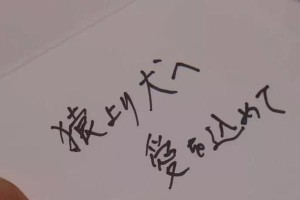 猿より犬へ
愛を込めて